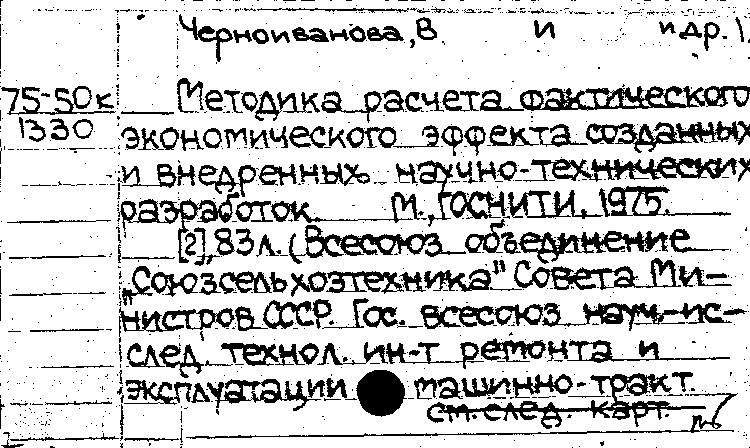 Черноиванова, В и и др.
75-50к Методика расчета фактического
1330 экономического эффекта созданных
и внедренных научно-технических
разработок. М., ГОСНИТИ, 1975.
[2], 83 л. (Всесоюз объединение
„Союзсельхозтехника" Совета Ми-
нистров СССР. Гос. всесоюз науч.-ис-
след. технол. ин-т ремонта и
эксплуатации машинно-тракт.
см. след. карт.